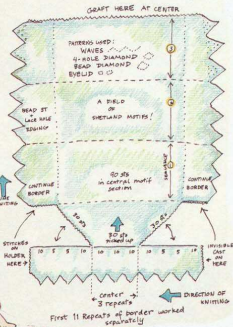 GRAFT HERE AT CENTER
PATTERNS USED:
WAVES
4-HOLE DIAMOND
BEAD DIAMOND
EYELID
3
BEAD ST
LACE HOLE
EDGING
A FIELD
OF
SHETLAND MOTIFS!
2
CONTINUE
BORDER
90 sts
in central motif
section
SEQUENCE
1
CONTINUE
BORDER
KNITTING
STITCHES
ON
HOLDER
HERE
30 sts
30 sts
picked up
30 sts
INVISIBLE
CAST
ON
HERE
10 5 5 5 10 10 10 10 5 5 10
center
3 repeats
DIRECTION OF
KNITTING
First 11 Repeats of border worked
separately